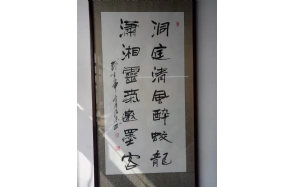 洞庭清風醉蛟龍
瀟湘靈氣邀墨客